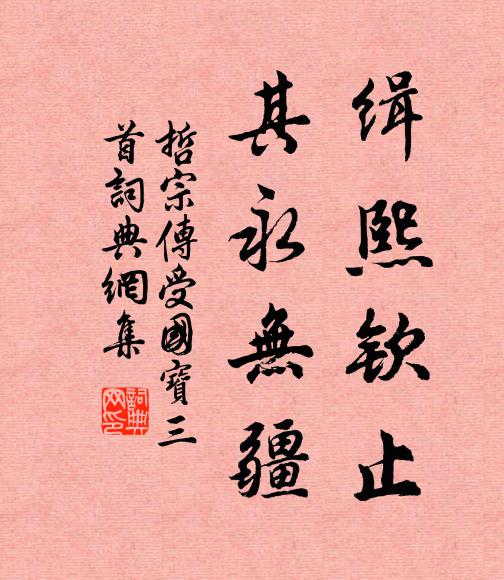 緝熙欽止
其永無疆
哲宗傳受國寶三
首詞典網集
詞典
网印